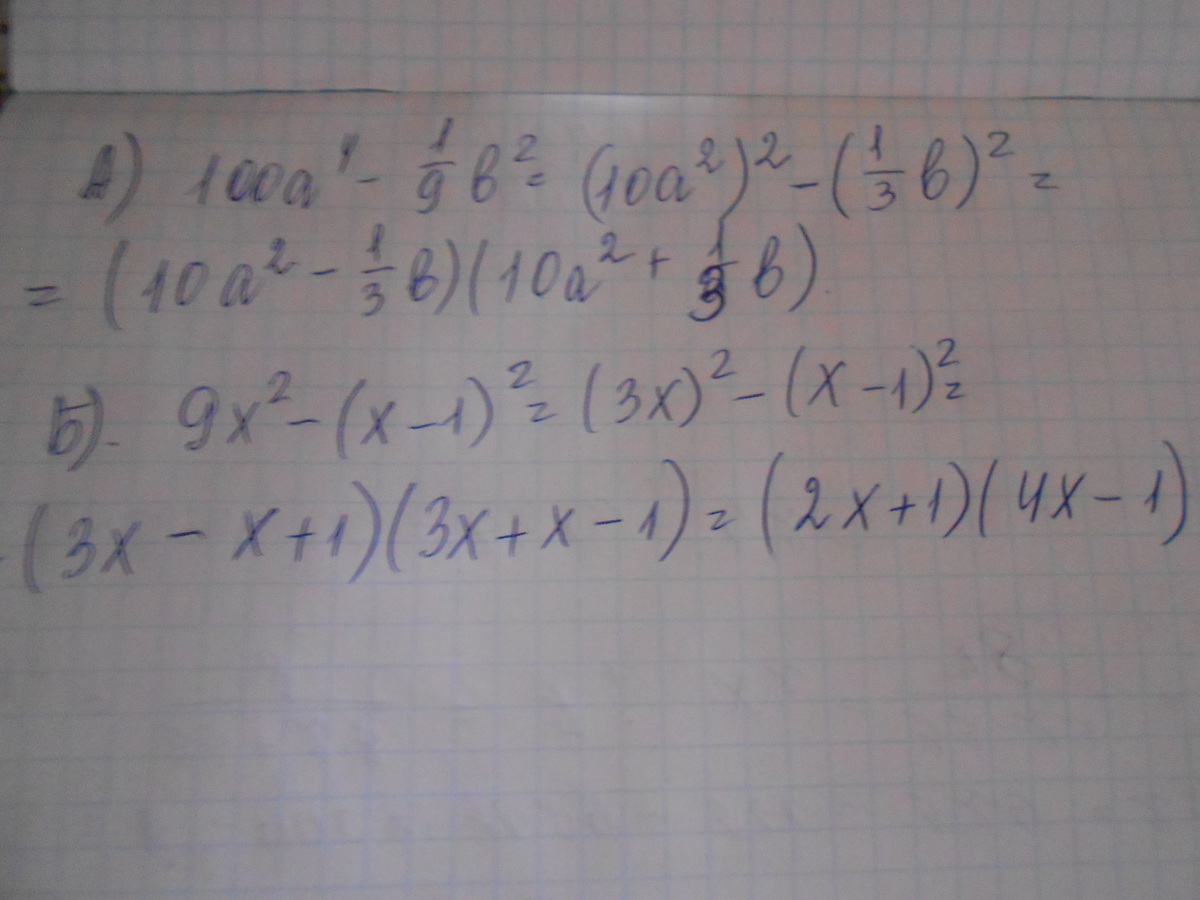 А) 100a⁴ - 1/9 b² = (10a²)² - (1/3 b)² =
= (10a² - 1/3 b)(10a² + 1/3 b).
Б). 9x² - (x - 1)² = (3x)² - (x - 1)² =
(3x - x + 1)(3x + x - 1) = (2x + 1)(4x - 1)